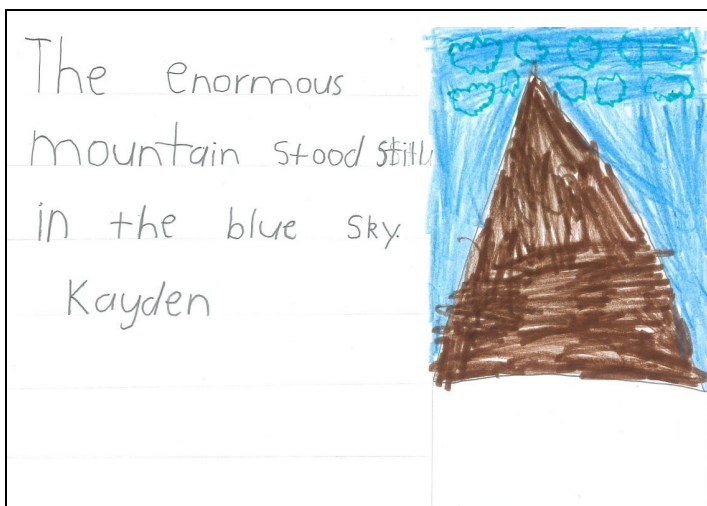 The enormous
mountain stood still
in the blue sky.
Kayden